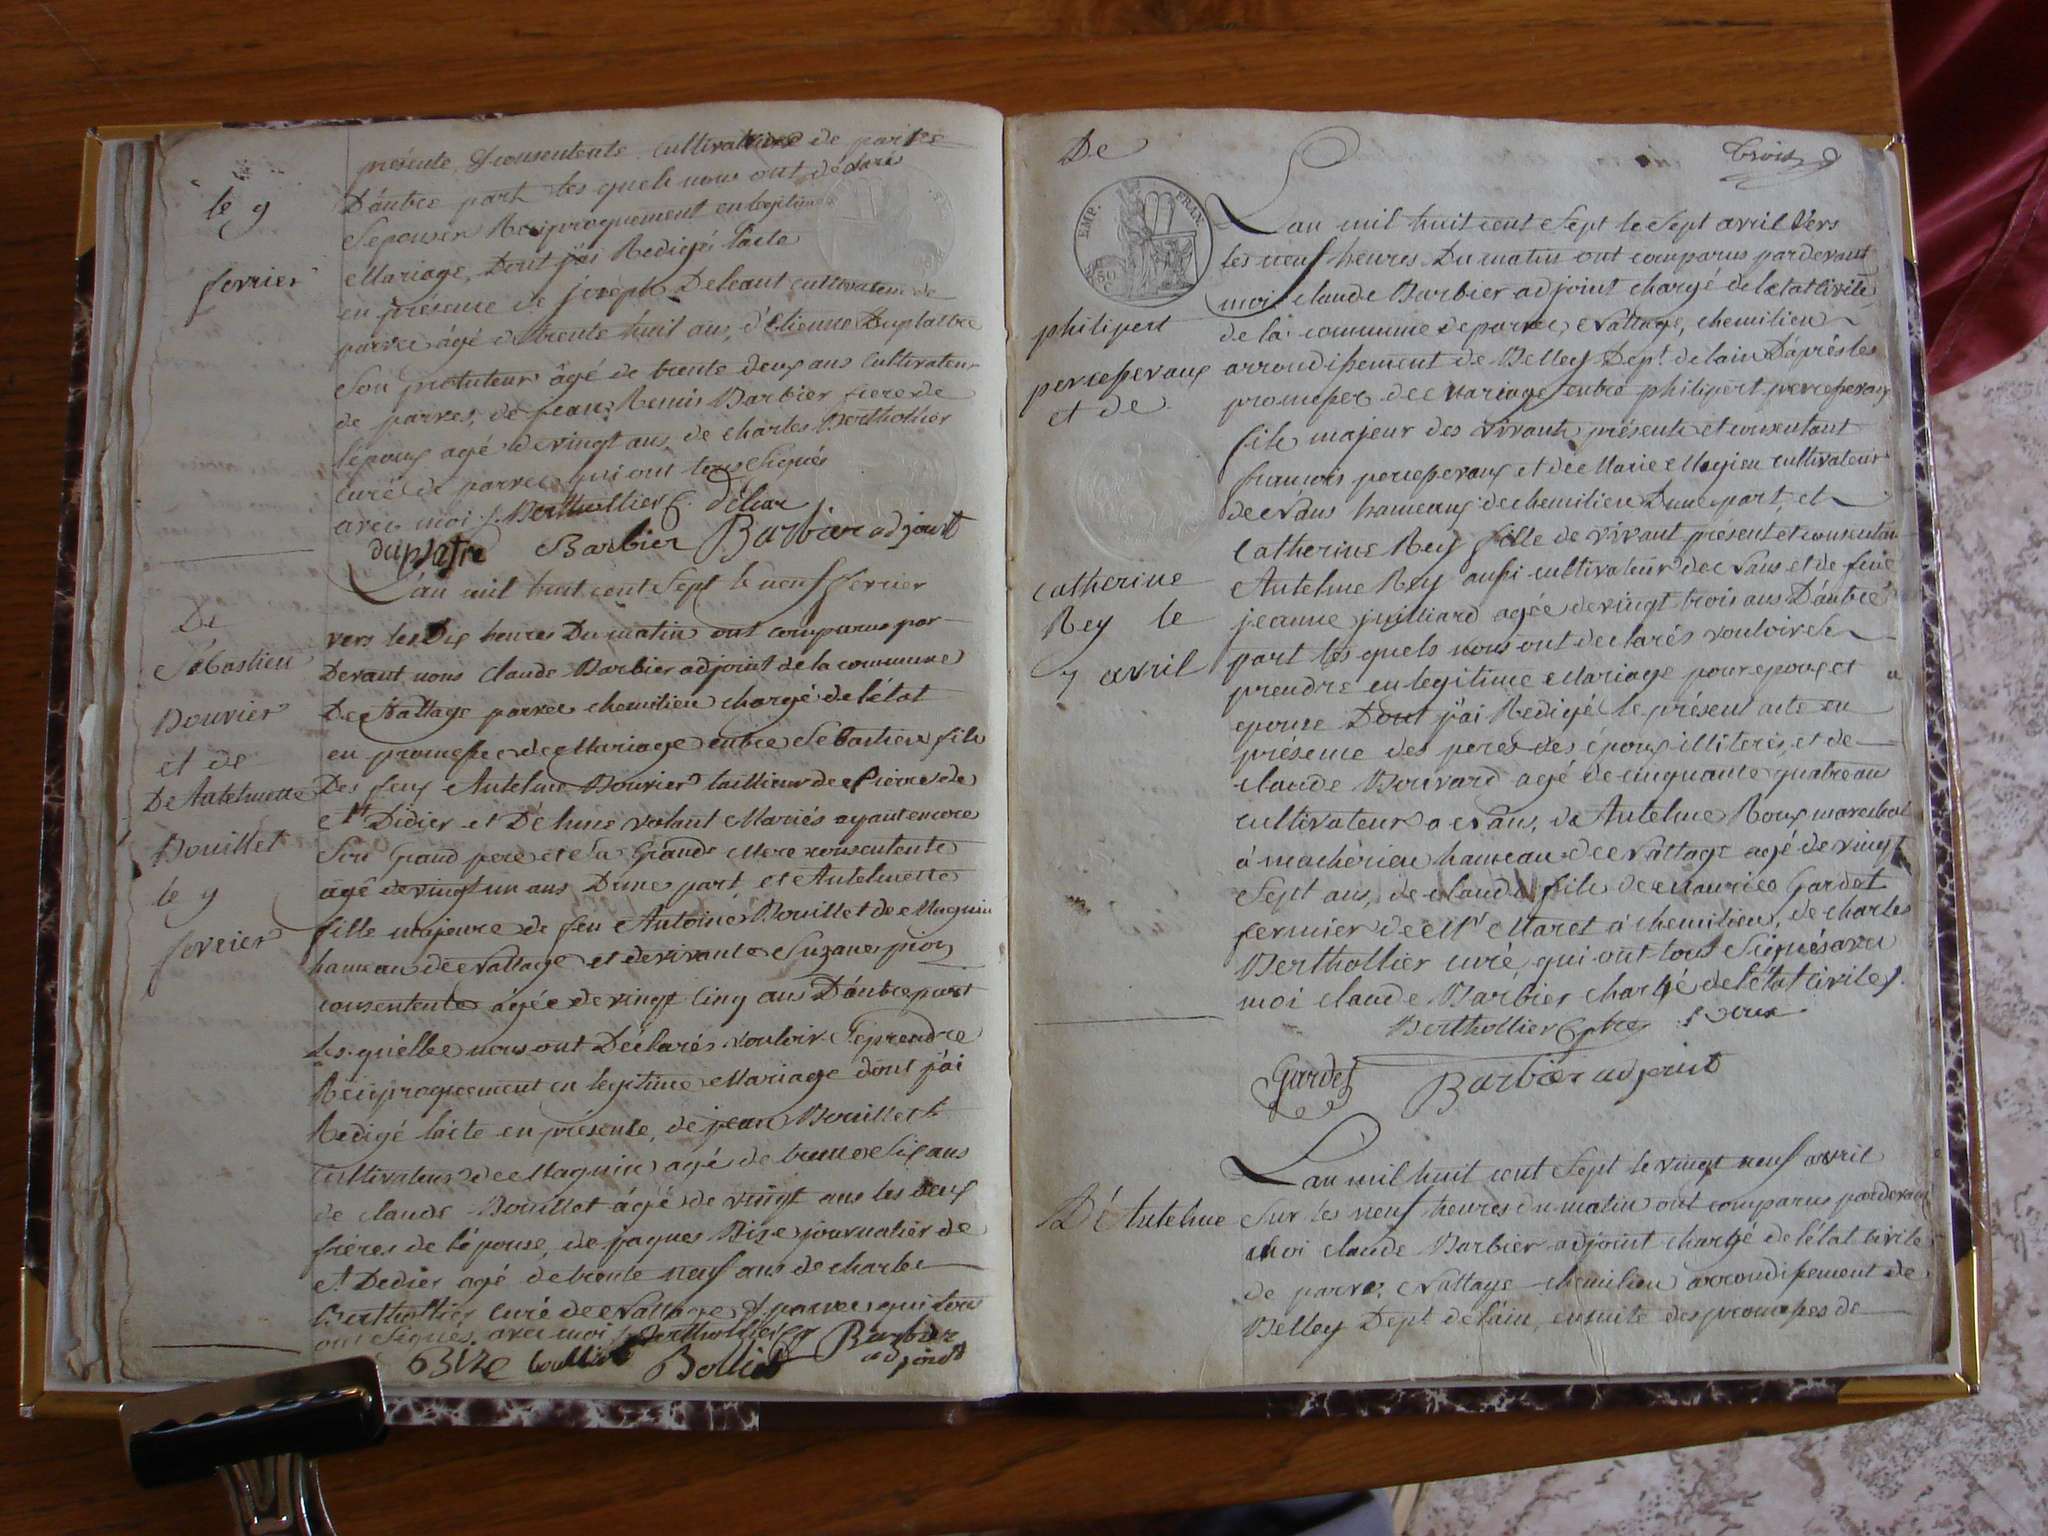 le 9
fevrier
présente & consentente cultivatrice de parves
D'autre part les quels nous ont déclaré
S'epouser Reciproquement en legitime
Mariage, Dont j'ai Redigés l'acte
en présence de joseph Deleant cultivateur de
parves âgé de trente huit ans, d'étienne Duplattre
son protuteur âgé de trente deux ans cultivateur
de parves, de jean Remis Barbier frere de
l'époux agé de vingt ans, de charles Berthollier
curé de parves qui ont tous Signés
avec moi Berthollier C.
duplatre Barbier Barbier adjoint
De
Sébastien
Bouvier
et de
De Antelmette
Bouillet
le 9
fevrier
L'an mil huit cent Sept le neuf fevrier
vers les Dix heures Du matin ont comparus par
Devant nous Claude Barbier adjoint de la commune
De Nattage parves chemilieu chargé de l'état
en promesse de Mariage entre Sébastien fils
Des feux Antelme Bouvier tailleur de Pierre de
St Didier et Mariés ayant encore
Son Grand pere et Sa Grande Mere consentente
agé de vingt un ans D'une part et Antelmette
fille majeure de feu Antoine Bouillet de Magnin
hameau de Nattage et de vivante Suzane
consentente agée de vingt cinq ans D'autre part
les quelles nous ont Déclarés vouloir Se prendre
Reciproquement en legitime Mariage dont j'ai
Redigé l'acte en présente, de jean Bouillet
Cultivateur de Magnin agé de trente Six ans
de claude Bouillet agé de vingt ans les deux
frères de l'épouse, de jaques Bize journalier de
St Dedier agé de trente neuf ans de charles
Berthollier curé de Nattage & parves qui tous
ont Signés avec moi Berthollier Barbier
Bize adjoint
De
trois
EMP. FRAN.
50
philipert
percepevaux
et de
catherine
Rey le
7 avril
L'an mil huit cent Sept le Sept avril Vers
les neuf heures Du matin ont comparus pardevant
moi claude Barbier adjoint chargé de l'état civile
de la commune de parves Nattage, chemilieu
arrondissement de Belley Dept. de l'ain D'après les
promesses de Mariage entre philipert percepevaux
fils majeur des vivants présente et consentant
françois percepevaux et de Marie Mogieu cultivateur
de Nans hameaux de chemilieu D'une part, et
Catherine Rey fille de vivant présent et consentan
Antelme Rey aussi cultivateur de Nans et de feue
jeanne juilliard agée de vingt trois ans D'autre
part les quels nous ont declarés vouloir Se
prendre en legitime Mariage pour epoux et
epouse Dont j'ai Redigé le présent acte en
présence des peres des époux illiterés, et de
claude Bouvard agé de cinquante quatre ans
cultivateur a Nans, de Antelme Roux marechal
à machérieu hameau de Nattage agé de vingt
Sept ans, de claude fils de Maurice Gardet
fermier de Mr Maret à chemilieu, de charles
Berthollier curé qui ont tous Signés avec
moi claude Barbier chargé de l'état civile
Berthollier Roux
Gardet Barbier adjoint
D'Antelme
L'an mil huit cent Sept le vingt neuf avril
Sur les neuf heures du matin ont comparus pardevant
Moi claude Barbier adjoint chargé de l'état civile
de parves Nattage chemilieu arrondissement de
Belley Dept de l'ain, ensuite des promesses de